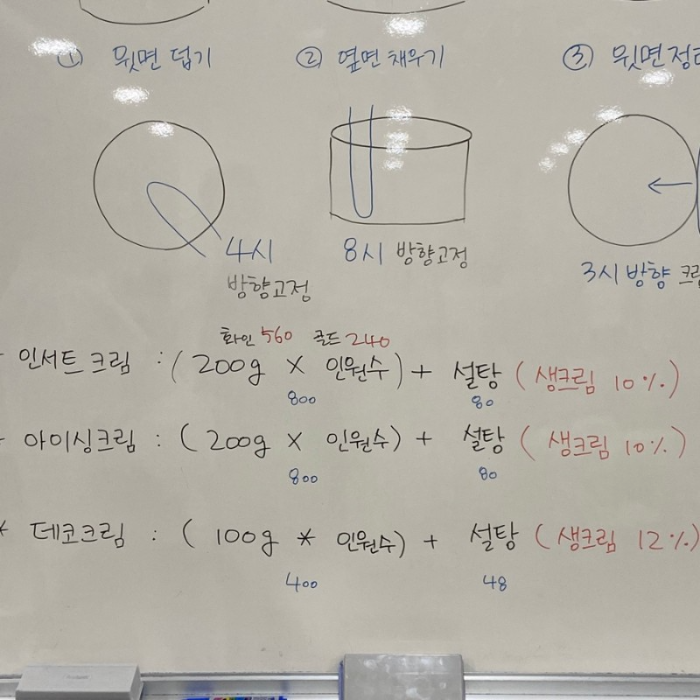 ① 윗면 덥기
② 옆면 채우기
③ 윗면 정
4시
방향고정
8시 방향고정
3시 방향 크
화인 560 골드 240
인서트 크림 : (200g X 인원수) + 설탕 (생크림 10%)
800 80
아이싱크림 : (200g X 인원수) + 설탕 (생크림 10%)
800 80
* 데코크림 : (100g * 인원수) + 설탕 (생크림 12%)
400 48